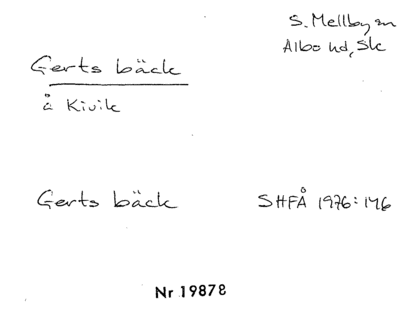 S. Mellby sn
Albo hd, Sk
Gerts bäck
å Kivik
Gerts bäck
SHFÅ 1976:146
Nr 19878